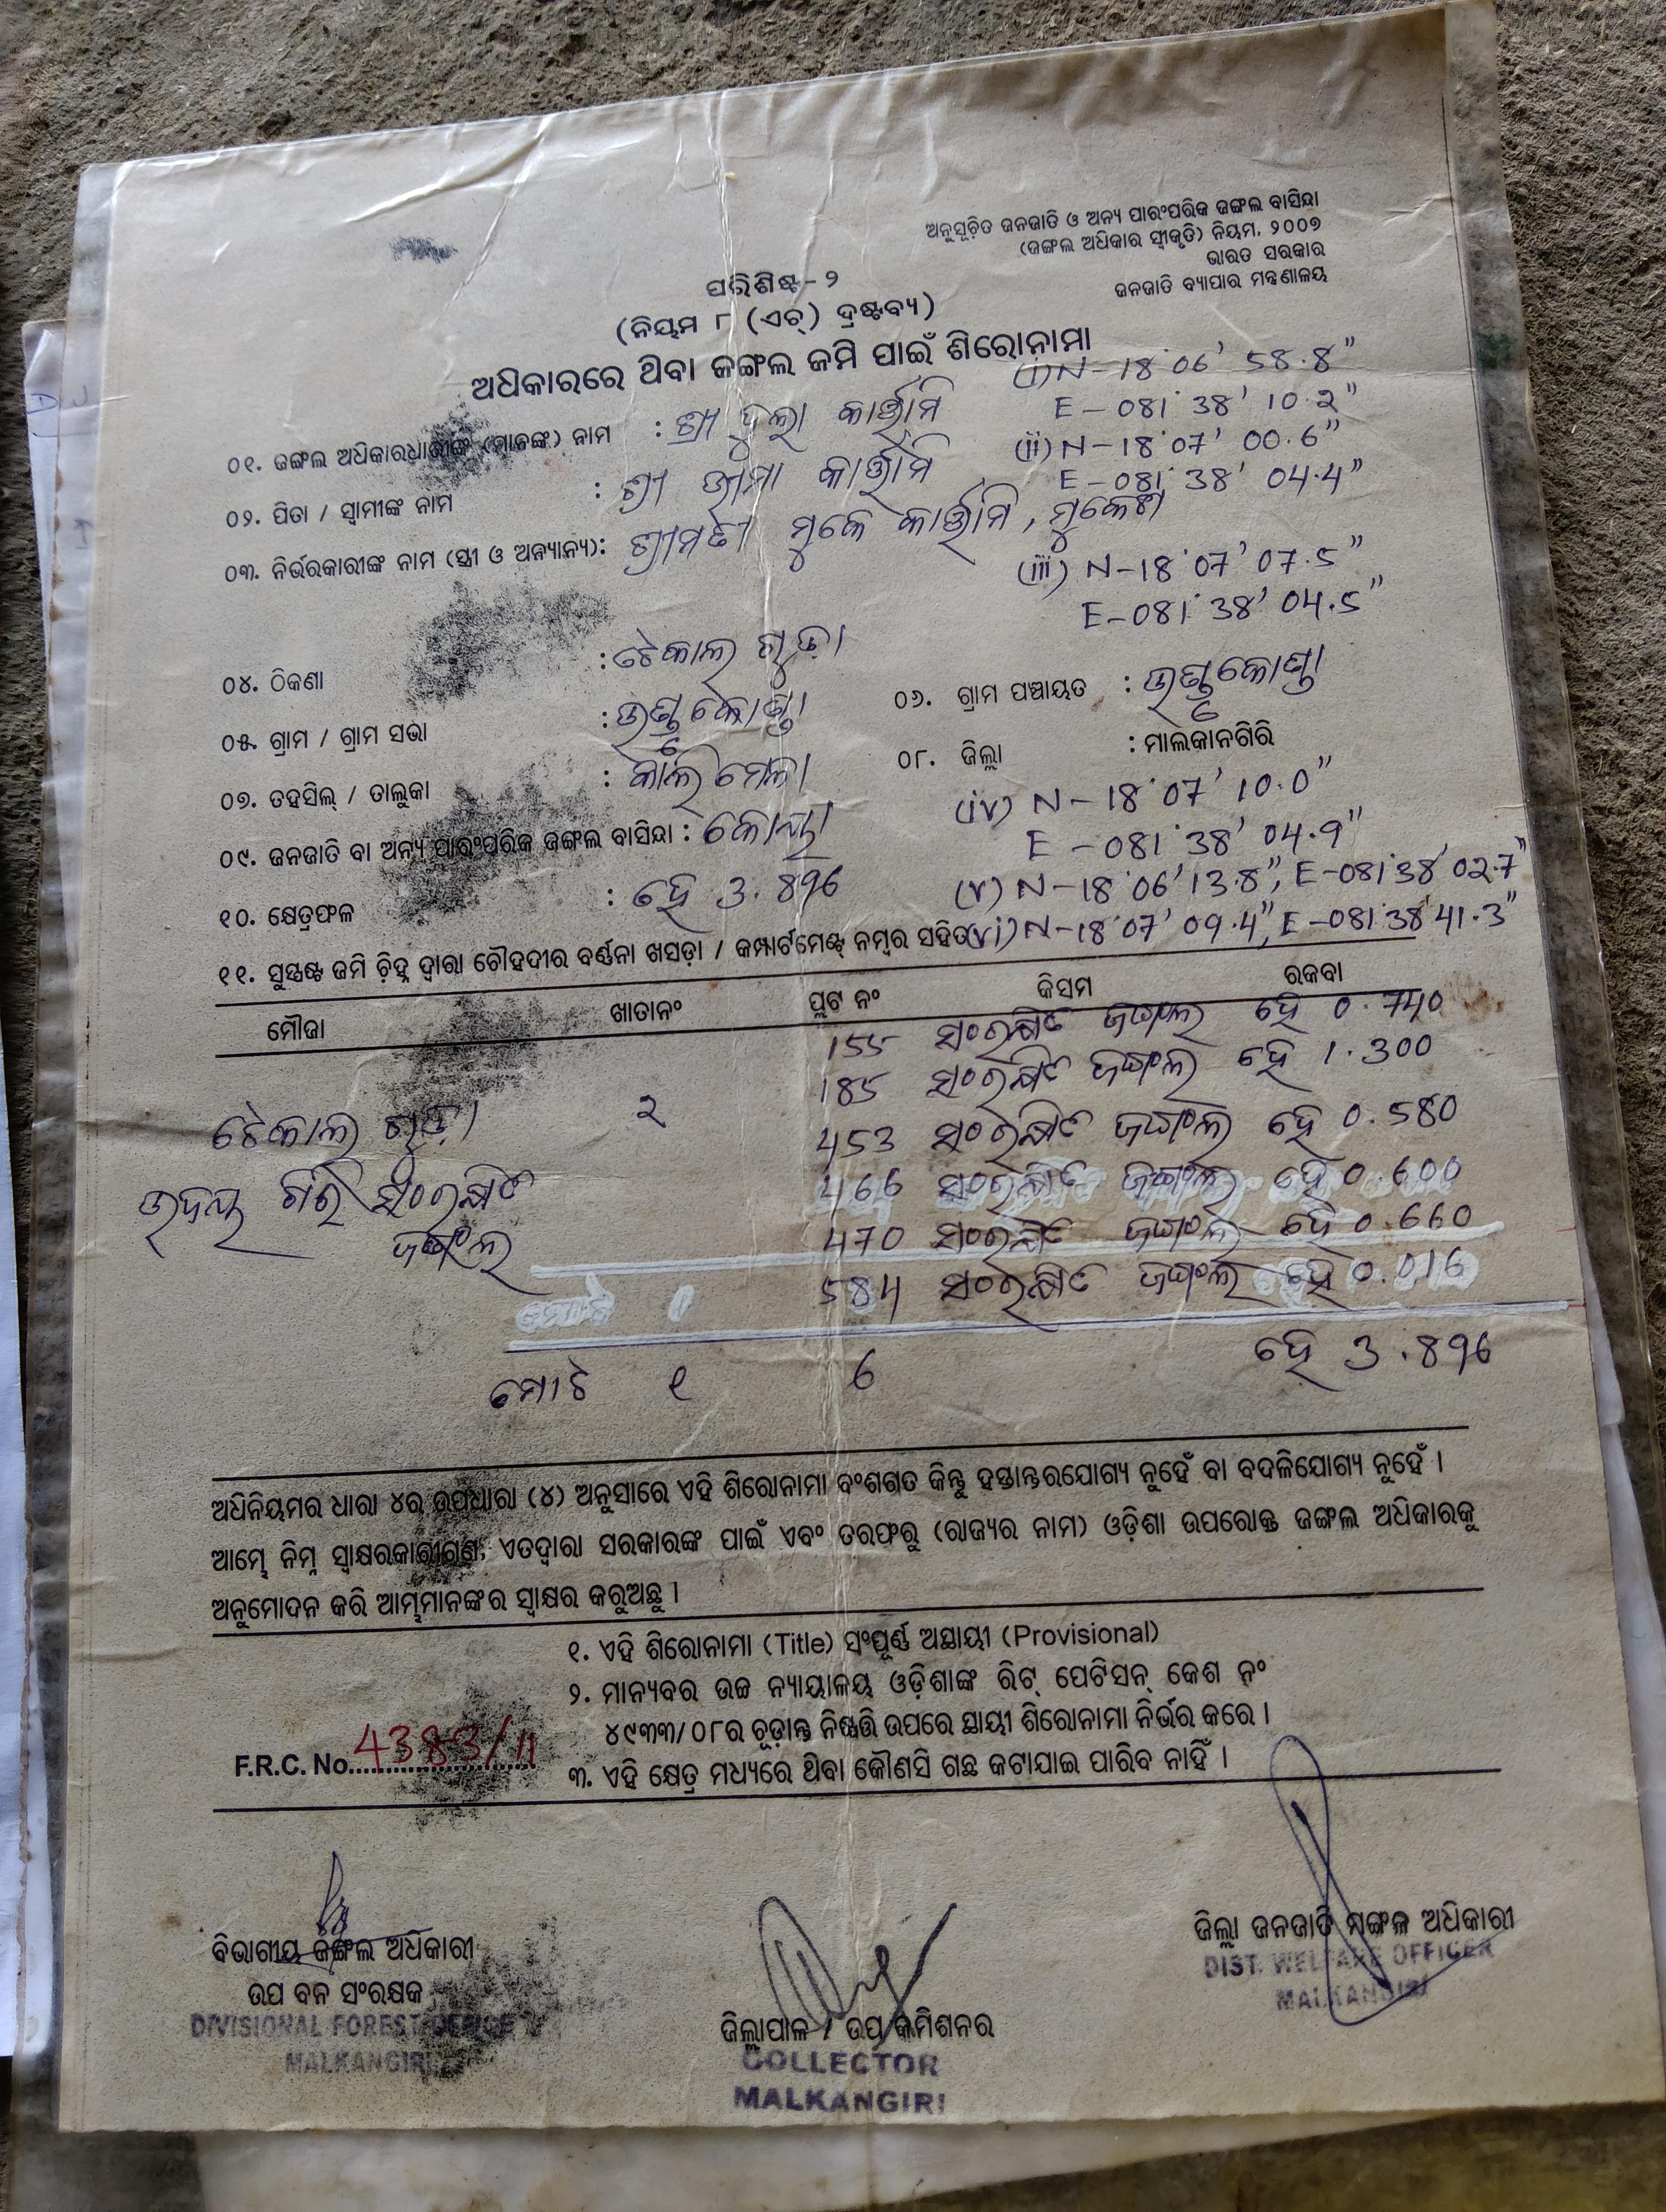 ଅନୁସୂଚିତ ଜନଜାତି ଓ ଅନ୍ୟ ପାରଂପରିକ ଜଙ୍ଗଲ ବାସିନ୍ଦା
(ଜଙ୍ଗଲ ଅଧିକାର ସ୍ୱୀକୃତି) ନିୟମ, ୨୦୦୭
ଭାରତ ସରକାର
ଜନଜାତି ବ୍ୟାପାର ମନ୍ତ୍ରଣାଳୟ
ପରିଶିଷ୍ଟ - ୨
(ନିୟମ ୮ (ଏଚ୍) ଦ୍ରଷ୍ଟବ୍ୟ)
ଅଧିକାରରେ ଥିବା ଜଙ୍ଗଲ ଜମି ପାଇଁ ଶିରୋନାମା
(i) N - 18°06' 58.8"
E - 081° 38' 10.2"
୦୧. ଜଙ୍ଗଲ ଅଧିକାରଧାରୀଙ୍କ (ମାନଙ୍କ) ନାମ : ଶ୍ରୀ ଦୁଲା କାର୍ତ୍ତାମି
(ii) N - 18°07' 00.6"
E - 081° 38' 04.4"
୦୨. ପିତା / ସ୍ୱାମୀଙ୍କ ନାମ : ଶ୍ରୀ ଭୀମା କାର୍ତ୍ତାମି
୦୩. ନିର୍ଭରକାରୀଙ୍କ ନାମ (ସ୍ତ୍ରୀ ଓ ଅନ୍ୟାନ୍ୟ) : ଶ୍ରୀମତୀ ମୁକେ କାର୍ତ୍ତାମି, ମୁକେଶ
(iii) N - 18°07' 07.5"
E - 081° 38' 04.5"
୦୪. ଠିକଣା : ଟେକାଲ ଗୁଡ଼ା
୦୫. ଗ୍ରାମ / ଗ୍ରାମ ସଭା : ଉଣ୍ଡୁକୋଣ୍ଡା ୦୬. ଗ୍ରାମ ପଞ୍ଚାୟତ : ଉଣ୍ଡୁକୋଣ୍ଡା
୦୭. ତହସିଲ୍ / ତାଲୁକା : କାଲିମେଳା ୦୮. ଜିଲ୍ଲା : ମାଲକାନଗିରି
(iv) N - 18°07' 10.0"
E - 081° 38' 04.9"
୦୯. ଜନଜାତି ବା ଅନ୍ୟ ପାରଂପରିକ ଜଙ୍ଗଲ ବାସିନ୍ଦା : କୋୟା
(v) N - 18°06' 13.8", E - 081°38' 02.7"
୧୦. କ୍ଷେତ୍ରଫଳ : ହେ 3.896
(vi) N - 18°07' 09.4", E - 081°38' 41.3"
୧୧. ସୁସ୍ପଷ୍ଟ ଜମି ଚିହ୍ନ ଦ୍ୱାରା ଚୌହଦୀର ବର୍ଣ୍ଣନା ଖସଡ଼ା / କମ୍ପାର୍ଟମେଣ୍ଟ୍ ନମ୍ବର ସହିତ
ମୌଜା ଖାତାନଂ ପ୍ଲଟ ନଂ କିସମ ରକବା
155 ସଂରକ୍ଷିତ ଜଙ୍ଗଲ ହେ 0.740
185 ସଂରକ୍ଷିତ ଜଙ୍ଗଲ ହେ 1.300
ଟେକାଲ ଗୁଡ଼ା ୨ 453 ସଂରକ୍ଷିତ ଜଙ୍ଗଲ ହେ 0.580
ଉଦୟ ଗିରି ସଂରକ୍ଷିତ 466 ସଂରକ୍ଷିତ ଜଙ୍ଗଲ ହେ 0.600
ଜଙ୍ଗଲ 470 ସଂରକ୍ଷିତ ଜଙ୍ଗଲ ହେ 0.660
584 ସଂରକ୍ଷିତ ଜଙ୍ଗଲ ହେ 0.016
ମୋଟ ୧ 6 ହେ 3.896
ଅଧିନିୟମର ଧାରା ୪ର ଉପଧାରା (୪) ଅନୁସାରେ ଏହି ଶିରୋନାମା ବଂଶଗତ କିନ୍ତୁ ହସ୍ତାନ୍ତରଯୋଗ୍ୟ ନୁହେଁ ବା ବଦଳିଯୋଗ୍ୟ ନୁହେଁ ।
ଆମ୍ଭେ ନିମ୍ନ ସ୍ୱାକ୍ଷରକାରୀଗଣ, ଏତଦ୍ୱାରା ସରକାରଙ୍କ ପାଇଁ ଏବଂ ତରଫରୁ (ରାଜ୍ୟର ନାମ) ଓଡ଼ିଶା ଉପରୋକ୍ତ ଜଙ୍ଗଲ ଅଧିକାରକୁ
ଅନୁମୋଦନ କରି ଆମ୍ଭମାନଙ୍କର ସ୍ୱାକ୍ଷର କରୁଅଛୁ ।
୧. ଏହି ଶିରୋନାମା (Title) ସଂପୂର୍ଣ୍ଣ ଅସ୍ଥାୟୀ (Provisional)
୨. ମାନ୍ୟବର ଉଚ୍ଚ ନ୍ୟାୟାଳୟ ଓଡ଼ିଶାଙ୍କ ରିଟ୍ ପେଟିସନ୍ କେଶ ନଂ
୪୯୩୩/୦୮ର ଚୂଡ଼ାନ୍ତ ନିଷ୍ପତ୍ତି ଉପରେ ସ୍ଥାୟୀ ଶିରୋନାମା ନିର୍ଭର କରେ ।
F.R.C. No. 4383/11
୩. ଏହି କ୍ଷେତ୍ର ମଧ୍ୟରେ ଥିବା କୌଣସି ଗଛ କଟାଯାଇ ପାରିବ ନାହିଁ ।
ବିଭାଗୀୟ ଜଙ୍ଗଲ ଅଧିକାରୀ
ଉପ ବନ ସଂରକ୍ଷକ
DIVISIONAL FOREST OFFICER
MALKANGIRI
ଜିଲ୍ଲାପାଳ / ଉପ କମିଶନର
COLLECTOR
MALKANGIRI
ଜିଲ୍ଲା ଜନଜାତି ମଙ୍ଗଳ ଅଧିକାରୀ
DIST. WELFARE OFFICER
MALKANGIRI